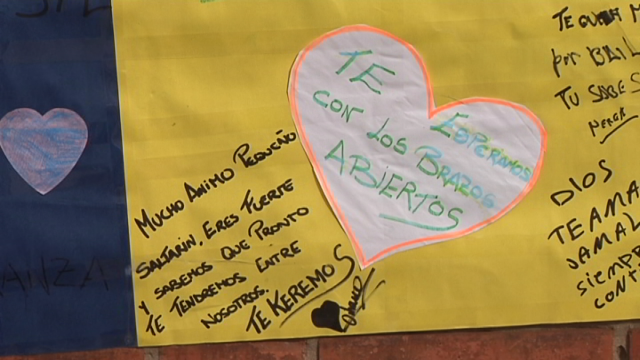 TE ESPERAMOS
CON LOS BRAZOS
ABIERTOS
MUCHO ANIMO PEQUEÑO
SALTARIN, ERES FUERTE
Y SABEMOS QUE PRONTO
TE TENDREMOS ENTRE
NOSOTROS.
TE KEREMOS
TU SABES
DIOS
TE AMA
JAMAL
siempre
CONT
ANZA